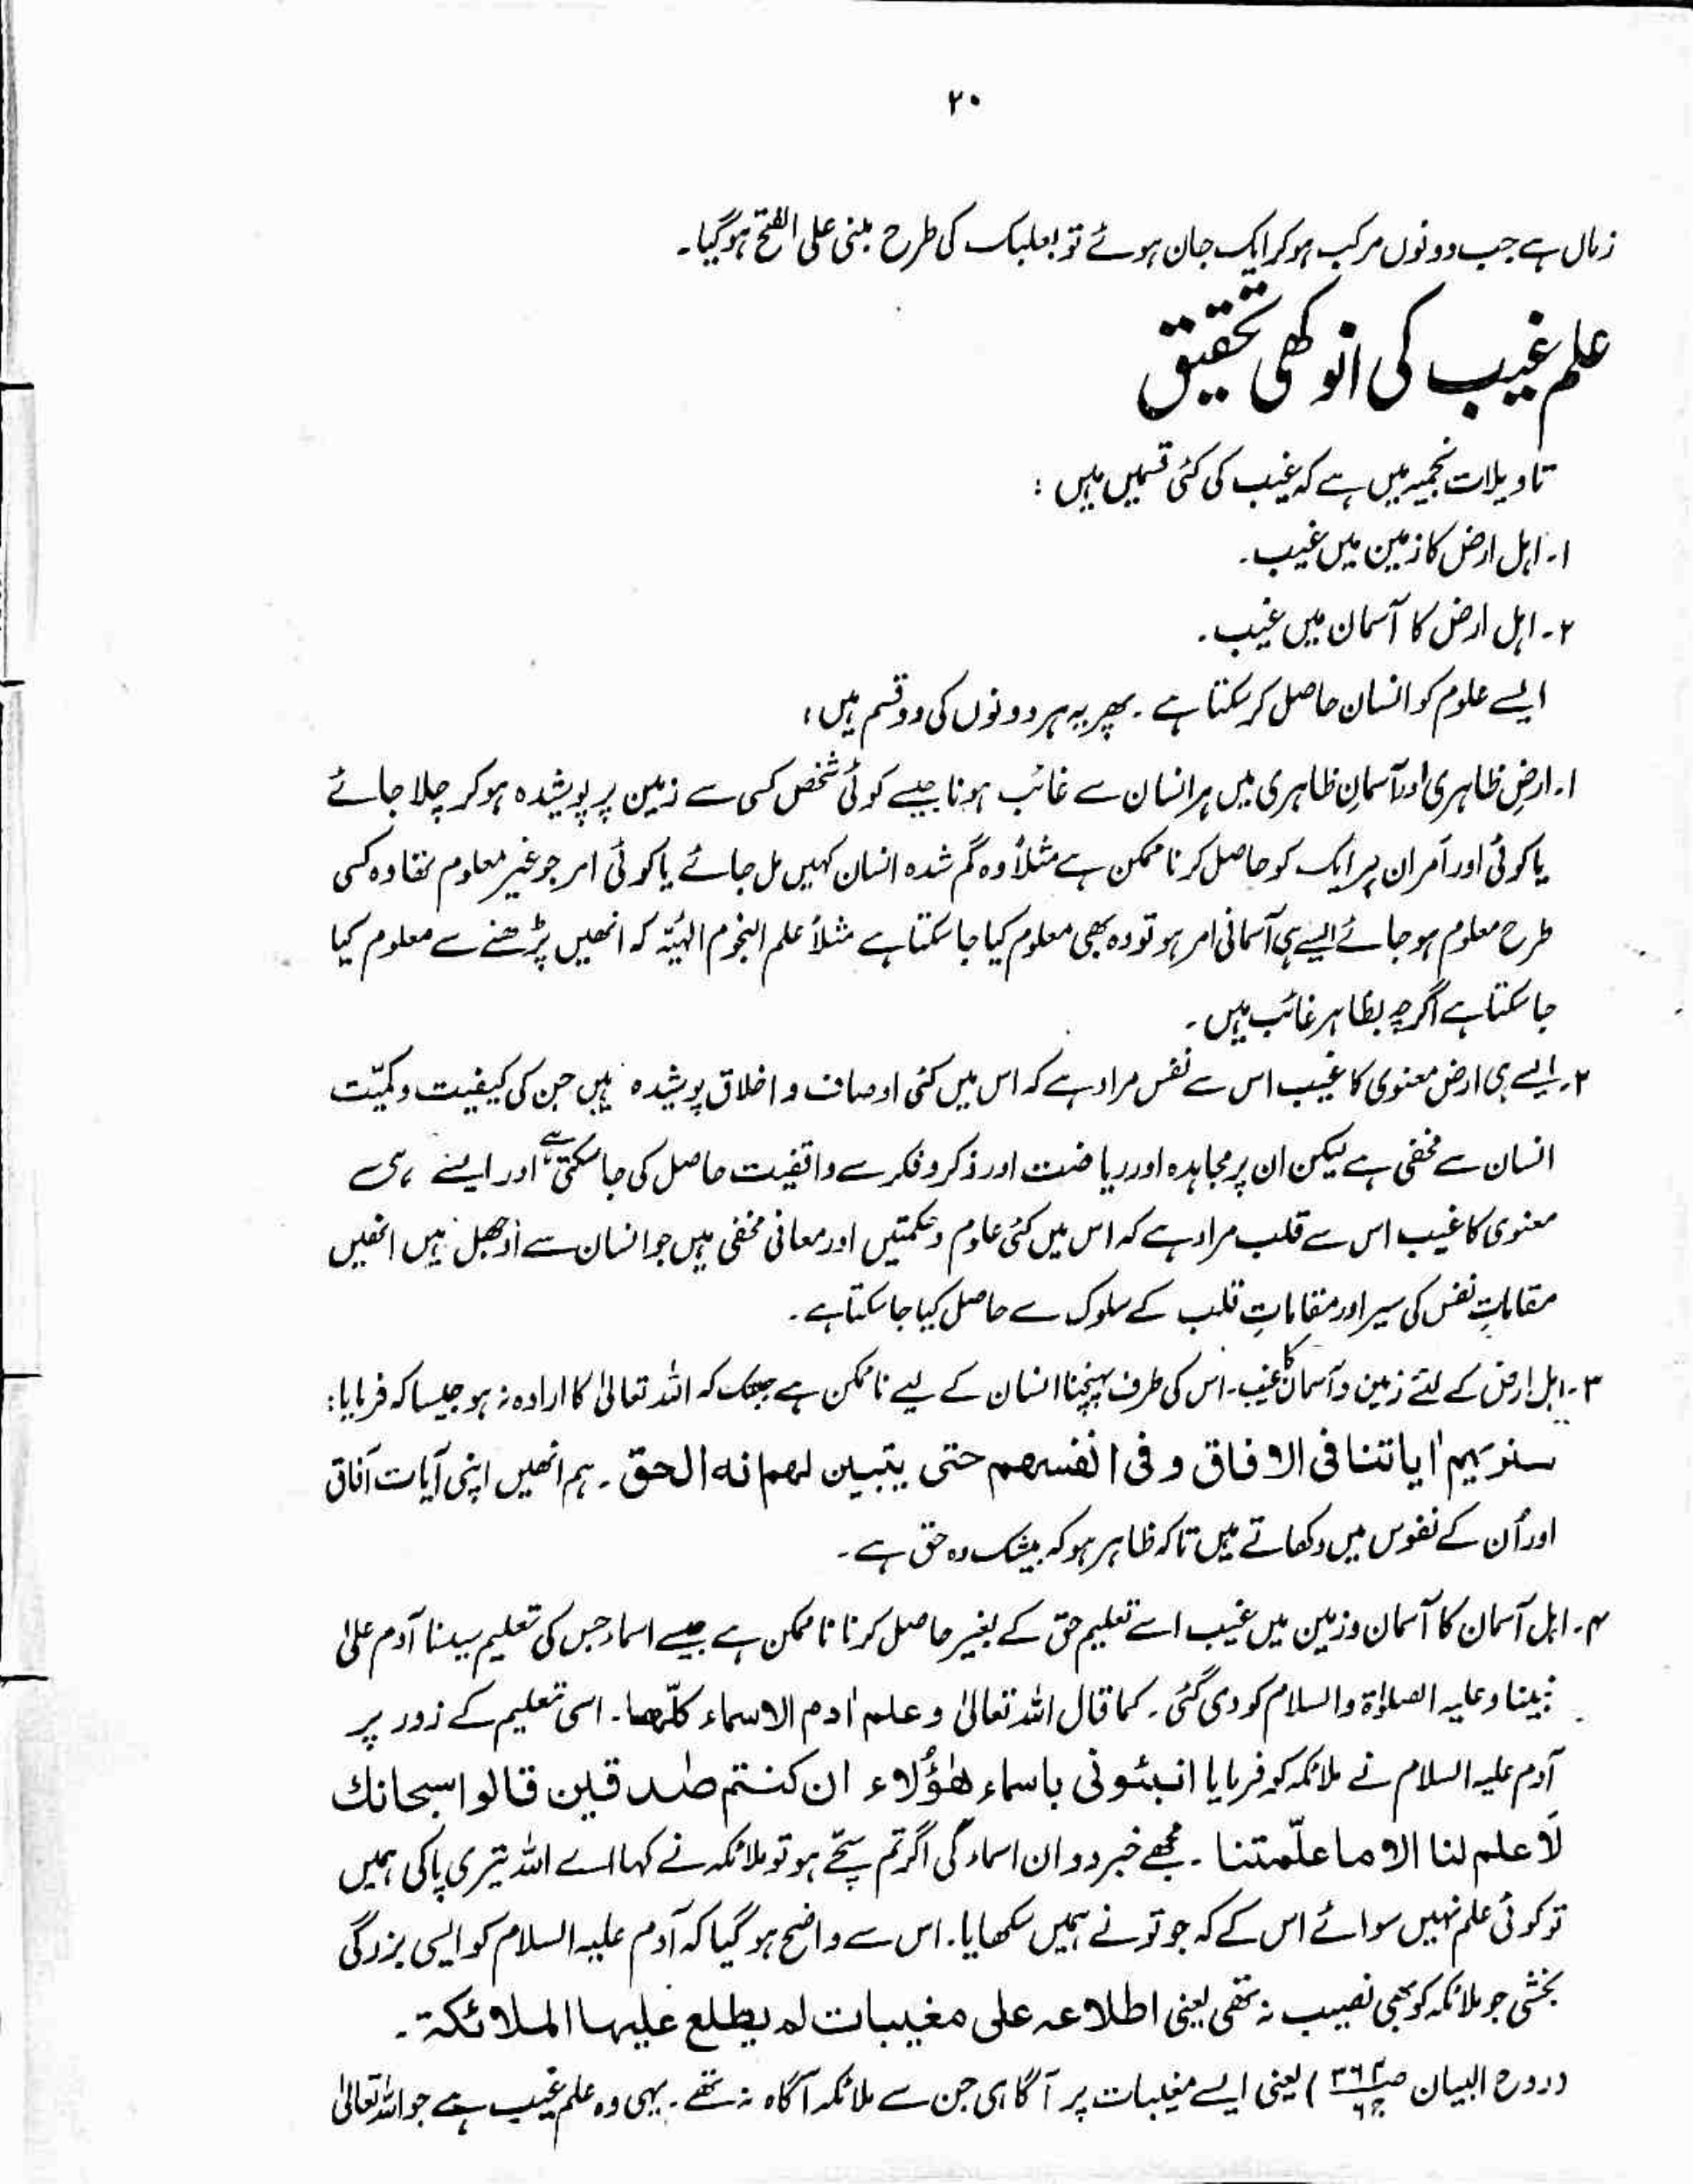 ۲۰
زماں ہے جب دونوں مرکب ہو کر ایک جان ہوئے تو بعلبک کی طرح مبنی علی الفتح ہوگیا۔
علم غیب کی انوکھی تحقیق
تاویلات نجمیہ میں ہے کہ غیب کی کئی قسمیں ہیں :
۱۔ اہل ارض کا زمین میں غیب۔
۲۔ اہل ارض کا آسمان میں غیب۔
ایسے علوم کو انسان حاصل کر سکتا ہے ۔ پھر یہ ہر دونوں کی دو قسم ہیں :
۱۔ ارضِ ظاہری اور آسمانِ ظاہری میں ہر انسان سے غائب ہونا جیسے کوئی شخص کسی سے زمین پر پوشیدہ ہو کر چلا جائے
یا کوئی اور اَمر ان ہر ایک کو حاصل کرنا ممکن ہے مثلاً وہ گم شدہ انسان کہیں مل جائے یا کوئی امر جو غیر معلوم تھا وہ کسی
طرح معلوم ہو جائے ایسے ہی آسمانی امر ہو تو وہ بھی معلوم کیا جا سکتا ہے مثلاً علم النجوم الہیئہ کہ انھیں پڑھنے سے معلوم کیا
جا سکتا ہے اگرچہ بظاہر غائب ہیں ۔
۲۔ ایسے ہی ارض معنوی کا غیب اس سے نفس مراد ہے کہ اس میں کئی اوصاف و اخلاق پوشیدہ ہیں جن کی کیفیت و کمیّت
انسان سے مخفی ہے لیکن ان پر مجاہدہ اور ریاضت اور ذکر و فکر سے واقفیت حاصل کی جا سکتی ہے اور ایسے ہی
معنوی کا غیب اس سے قلب مراد ہے کہ اس میں کئی علوم و حکمتیں اور معانی مخفی ہیں جو انسان سے اوجھل ہیں انھیں
مقاماتِ نفس کی سیر اور مقاماتِ قلب کے سلوک سے حاصل کیا جا سکتا ہے ۔
۳۔ اہل ارض کے لئے زمین و آسمان کا غیب۔ اس کی طرف پہنچنا انسان کے لیے ناممکن ہے جبتک کہ اللہ تعالیٰ کا ارادہ نہ ہو جیسا کہ فرمایا:
سنریہم اٰیاتنا فی الاٰفاق و فی انفسھم حتی یتبین لھم انہ الحق ۔ ہم انھیں اپنی آیات آفاق
اور اُن کے نفوس میں دکھاتے ہیں تاکہ ظاہر ہو کہ بیشک وہ حق ہے ۔
۴۔ اہل آسمان کا آسمان و زمین میں غیب اسے تعلیم حق کے بغیر حاصل کرنا ناممکن ہے جیسے اسماء جس کی تعلیم سیدنا آدم علیٰ
نبینا وعلیہ الصلوٰۃ والسلام کو دی گئی ۔ کما قال اللہ تعالیٰ و علم اٰدم الاسماء کلّھا۔ اسی تعلیم کے زور پر
آدم علیہ السلام نے ملائکہ کو فرمایا انبئونی باسماء ھٰؤُلاء ان کنتم صٰدقین قالوا سبحانك
لَا علم لنا الا ما علّمتنا ۔ مجھے خبر دو ان اسماء کی اگر تم سچّے ہو تو ملائکہ نے کہا اے اللہ تیری پاکی ہمیں
تو کوئی علم نہیں سوائے اس کے کہ جو تو نے ہمیں سکھایا۔ اس سے واضح ہو گیا کہ آدم علیہ السلام کو ایسی بزرگی
بخشی جو ملائکہ کو بھی نصیب نہ تھی یعنی اطلاعہ علی مغیبات لم یطلع علیہا الملائکۃ ۔
(روح البیان ) یعنی ایسے مغیبات پر آگاہی جن سے ملائکہ آگاہ نہ تھے ۔ یہی وہ علم غیب ہے جو اللہ تعالیٰ